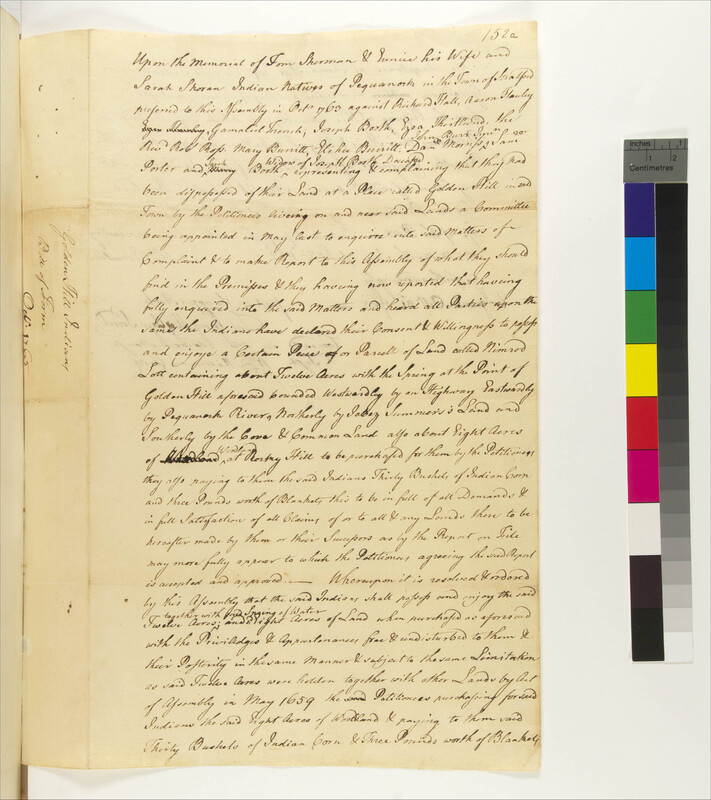 152a
Upon the Memorial of Tom Sherman & Eunice his Wife and
Sarah Shoran Indian Natives of Pequanock in the Town of Stratford
preferred to this Assembly in Octr 1763 against Richard Hall, Aaron Hawley
Gamaliel French, Joseph Booth, Ezra the
Revd Robt Ross, Mary Burritt, Elihu Burritt, John Burr Junr
Danl Morriss, Samll
Porter and Sarah Booth Widow of Joseph Booth Deceasd representing & complaining that they had
been dispossessed of their Land at a Place called Golden Hill in said
Town by the Petitionees liveing on and near said Lands a Committee
being appointed in May last to enquire into said Matters of
Complaint & to make Report to this Assembly of what they should
find in the Premisses & they haveing now reported that haveing
fully enquired into the said Matters and heard all Parties upon the
same the Indians have declared their Consent & Willingness to possess
and enjoye a Certain Peice or Parcell of Land called Nimrod
Lott containing about Twelve Acres with the Spring at the Point of
Golden Hill aforesaid bounded Westwardly by an Highway Eastwardly
by Pequanock River, Northerly by Jabez Summers's Land and
Southerly by the Cove & Common Land also about Eight Acres
of Woodland at Rocky Hill to be purchased for them by the Petitionees
they also paying to them the said Indians Thirty Bushels of Indian Corn
and three Pounds worth of Blankets this to be in full of all Demands &
in full Satisfaction of all Claims of or to all & any Lands there to be
hereafter made by them or their Successors as by the Report on File
may more fully appear to which the Petitionees agreeing the said Report
is accepted and approved.— Whereupon it is resolved & ordered
by this Assembly that the said Indians shall possess and enjoy the said
together with said Spring of Water
Twelve Acres; and Eight Acres of Land when purchased as aforesaid
with the Priviledges & Appurtenances free & undisturbed to them &
their Posterity in the same Manner & subject to the same Limitation
as said Twelve Acres were holden together with other Lands by Act
of Assembly in May 1659 the Petitionees purchasing for said
Indians the said Eight Acres of Woodland & paying to them said
Thirty Bushels of Indian Corn & Three Pounds worth of Blankets
Golden Hill Indians
Octr 1765
Inches
1
2
Centimetres